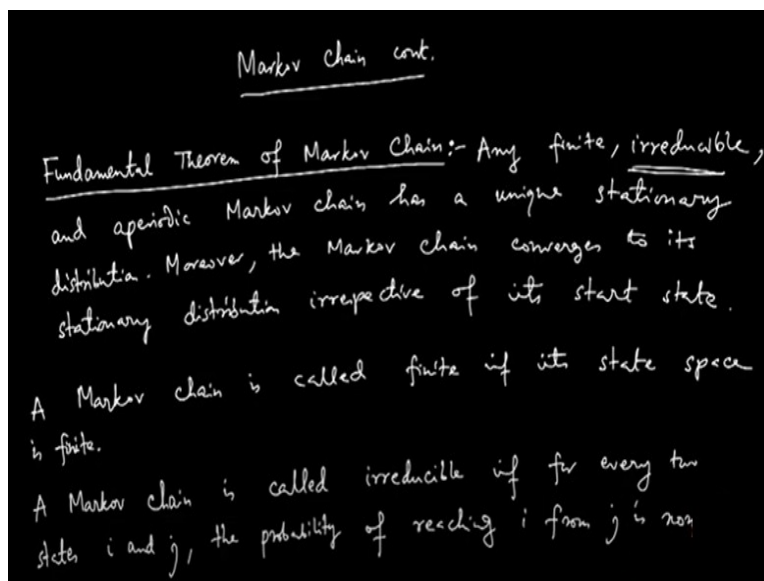 Markov Chain cont.
Fundamental Theorem of Markov Chain:- Any finite, irreducible,
and aperiodic Markov chain has a unique stationary
distribution. Moreover, the Markov chain converges to its
stationary distribution irrespective of its start state.
A Markov chain is called finite if its state space
is finite.
A Markov chain is called irreducible if for every two
states i and j, the probability of reaching i from j is non